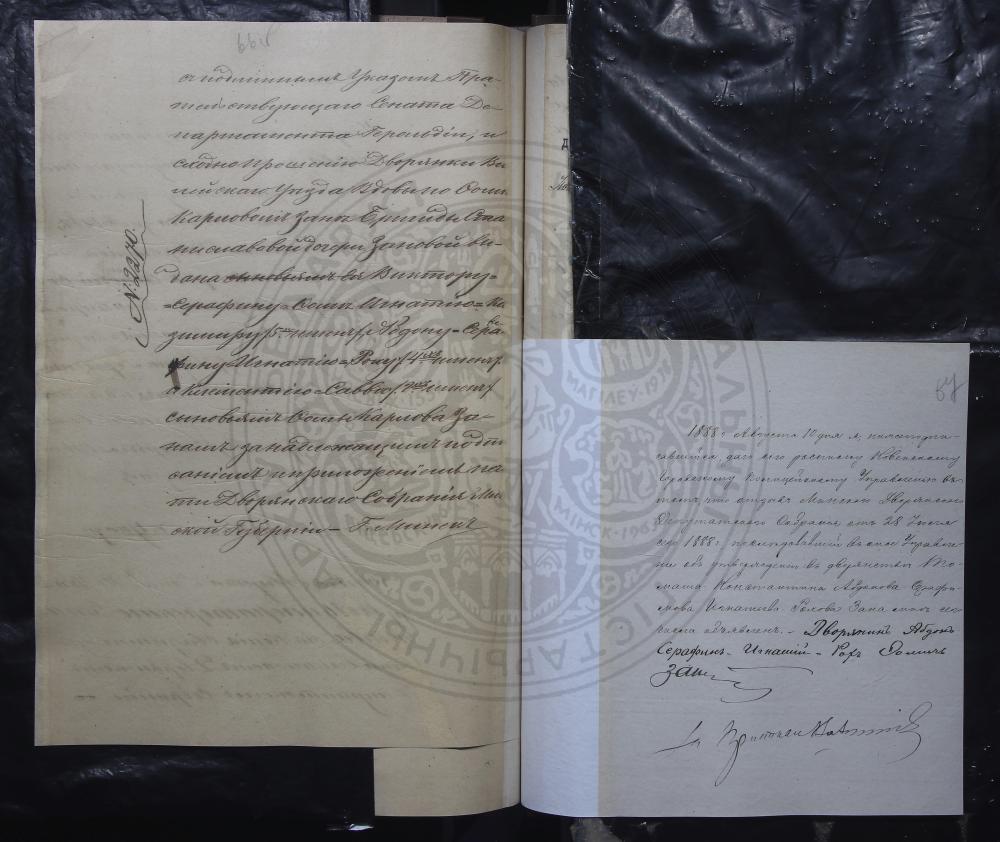 66об
съ подлиннымъ Указомъ Пра-
вительствующаго Сената Де-
партамента Герольдіи, и
сходно прошенію Дворянки Ви-
лейскаго Уѣзда Вдовы по Ѳомѣ
Карловомъ Занѣ Бригиды Ста
ниславовой дочери Зановой вы-
дана сыновьямъ ея Виктору-
Серафину-Ѳомѣ Игнатію-Ка
зимиру /5 имянъ/, Абдону-Сера
фину Игнатію-Року /4 имянъ/
и Константію-Саввѣ /2 имянъ/
сыновьямъ Ѳомы Карлова За-
намъ за надлежащимъ подпи
саніемъ и приложеніемъ пе
чати Дворянскаго Собранія Мин
ской Губерніи - Г. Минскъ
№ 2270.
67
1888 г. Августа 10 дня я, нижеподпи-
савшійся, далъ сію росписку Ковенскому
Городскому Полицейскому Управленію въ
томъ, что отзывъ Минскаго Дворянскаго
Депутатскаго Собранія отъ 28 Іюля
сего 1888 г. послѣдовавшій въ сіе Управле-
ніе объ утвержденіи въ дворянствѣ Ѳо-
маша Константина Абдонова Серафи-
мова Игнатіева Рохова Зана мнѣ сего
числа объявленъ. - Дворянинъ Абдонъ
Серафинъ - Игнатій - Рохъ Ѳомичъ
Занъ
МАГІЛЕЎ
МІНСК